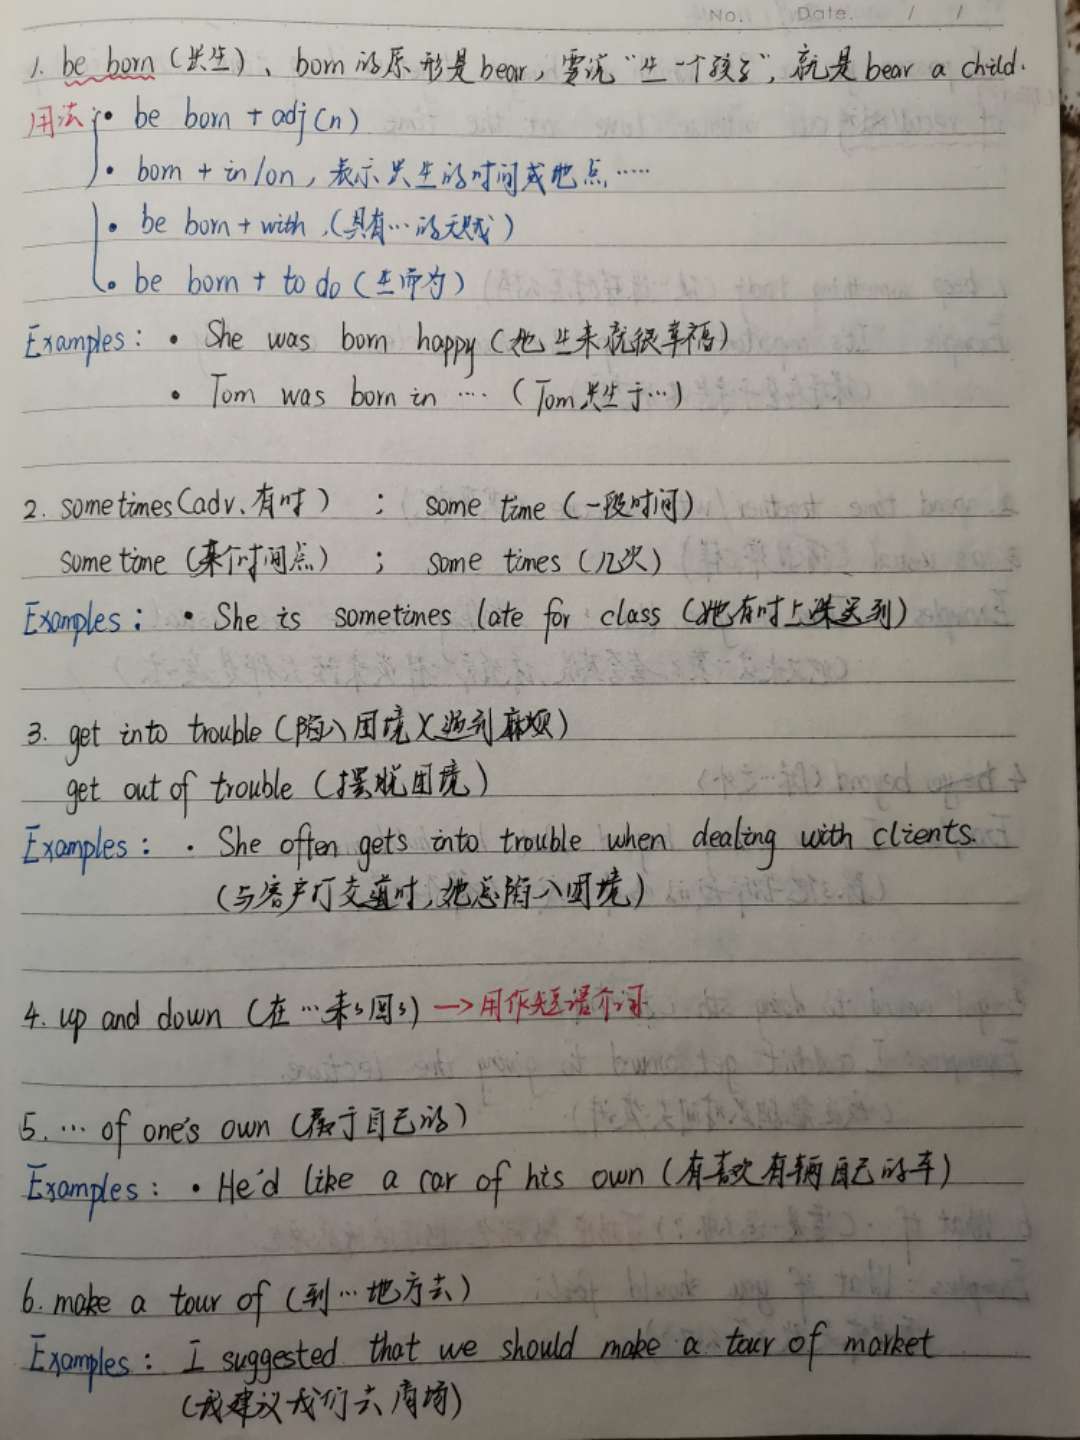 No. Date. / /
1. be born (出生)、born 的原形是bear, 要说"生一个孩子", 就是 bear a child.
用法 • be born + adj(n)
• born + in/on, 表示出生的时间或地点……
• be born + with (具有…的天赋)
• be born + to do (生而为)
Examples: • She was born happy (她生来就很幸福)
• Tom was born in … (Tom 出生于…)
2. sometimes (adv. 有时) ; some time (一段时间)
sometime (某个时间点) ; some times (几次)
Examples: • She is sometimes late for class (她有时上课迟到)
3. get into trouble (陷入困境)(遇到麻烦)
get out of trouble (摆脱困境)
Examples: • She often gets into trouble when dealing with clients.
(与客户打交道时, 她总陷入困境)
4. up and down (在…来来回回) → 用作短语介词
5. … of one's own (属于自己的)
Examples: • He'd like a car of his own (有喜欢有辆自己的车)
6. make a tour of (到…地方去)
Examples: I suggested that we should make a tour of market
(我建议我们去商场)